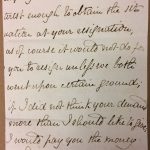 est enough to obtain the situ
nation at your resignation,
as of course it would not do for
you to resign unless we both
went upon certain ground,
if I did not think your demand
more than I should like to give
I would pay you the money